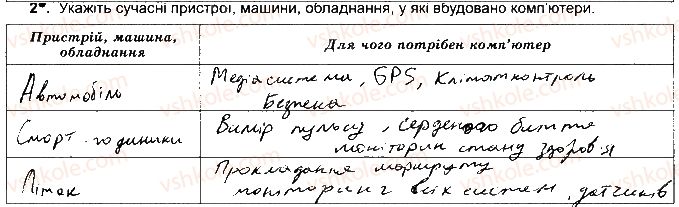 2*. Укажіть сучасні пристрої, машини, обладнання, у які вбудовано комп'ютери.
Пристрій, машина,
обладнання
Для чого потрібен комп'ютер
Автомобіль
Медіасистема, GPS, Кліматконтроль
Безпека
Смарт-годинники
Вимір пульсу, серденого биття
моніторин стану здоров'я
Літак
Прокладання маршруту
моніторинг всіх систем, датчиків
vshkole.com